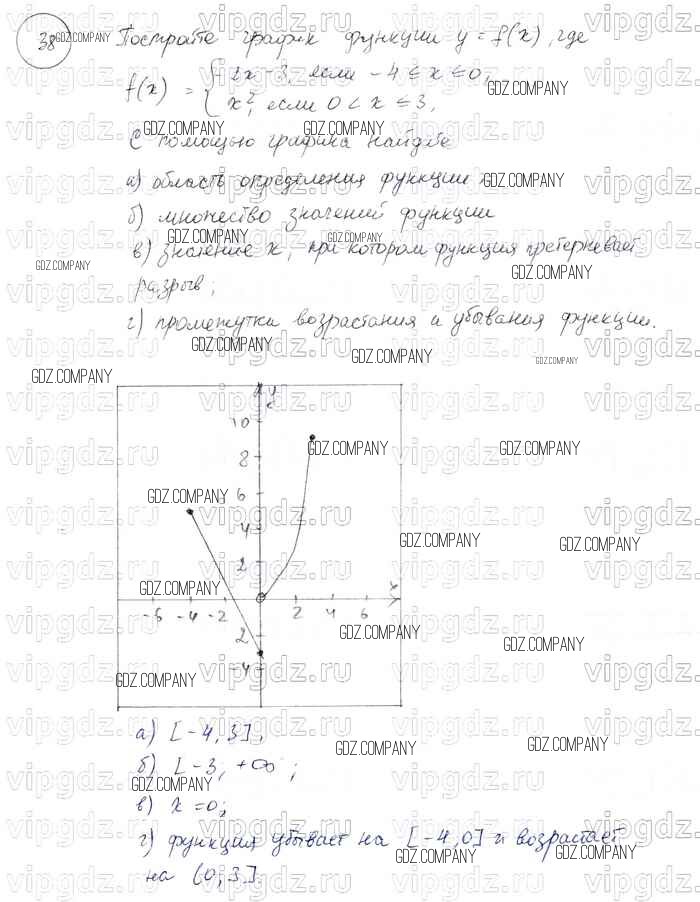 38 Постройте график функции y = f(x), где
f(x) = { -2x - 3, если -4 ≤ x ≤ 0,
x², если 0 < x ≤ 3,
С помощью графика найдите
а) область определения функции
б) множество значений функции
в) значение x, при котором функция претерпевает
разрыв;
г) промежутки возрастания и убывания функции.
y
10
8
6
4
2
x
-6 -4 -2 2 4 6
2
-4
а) [-4, 3],
б) [-3, +∞ ;
в) x = 0;
г) функция убывает на [-4, 0] и возрастает
на (0, 3].
GDZ.COMPANY
vipgdz.ru